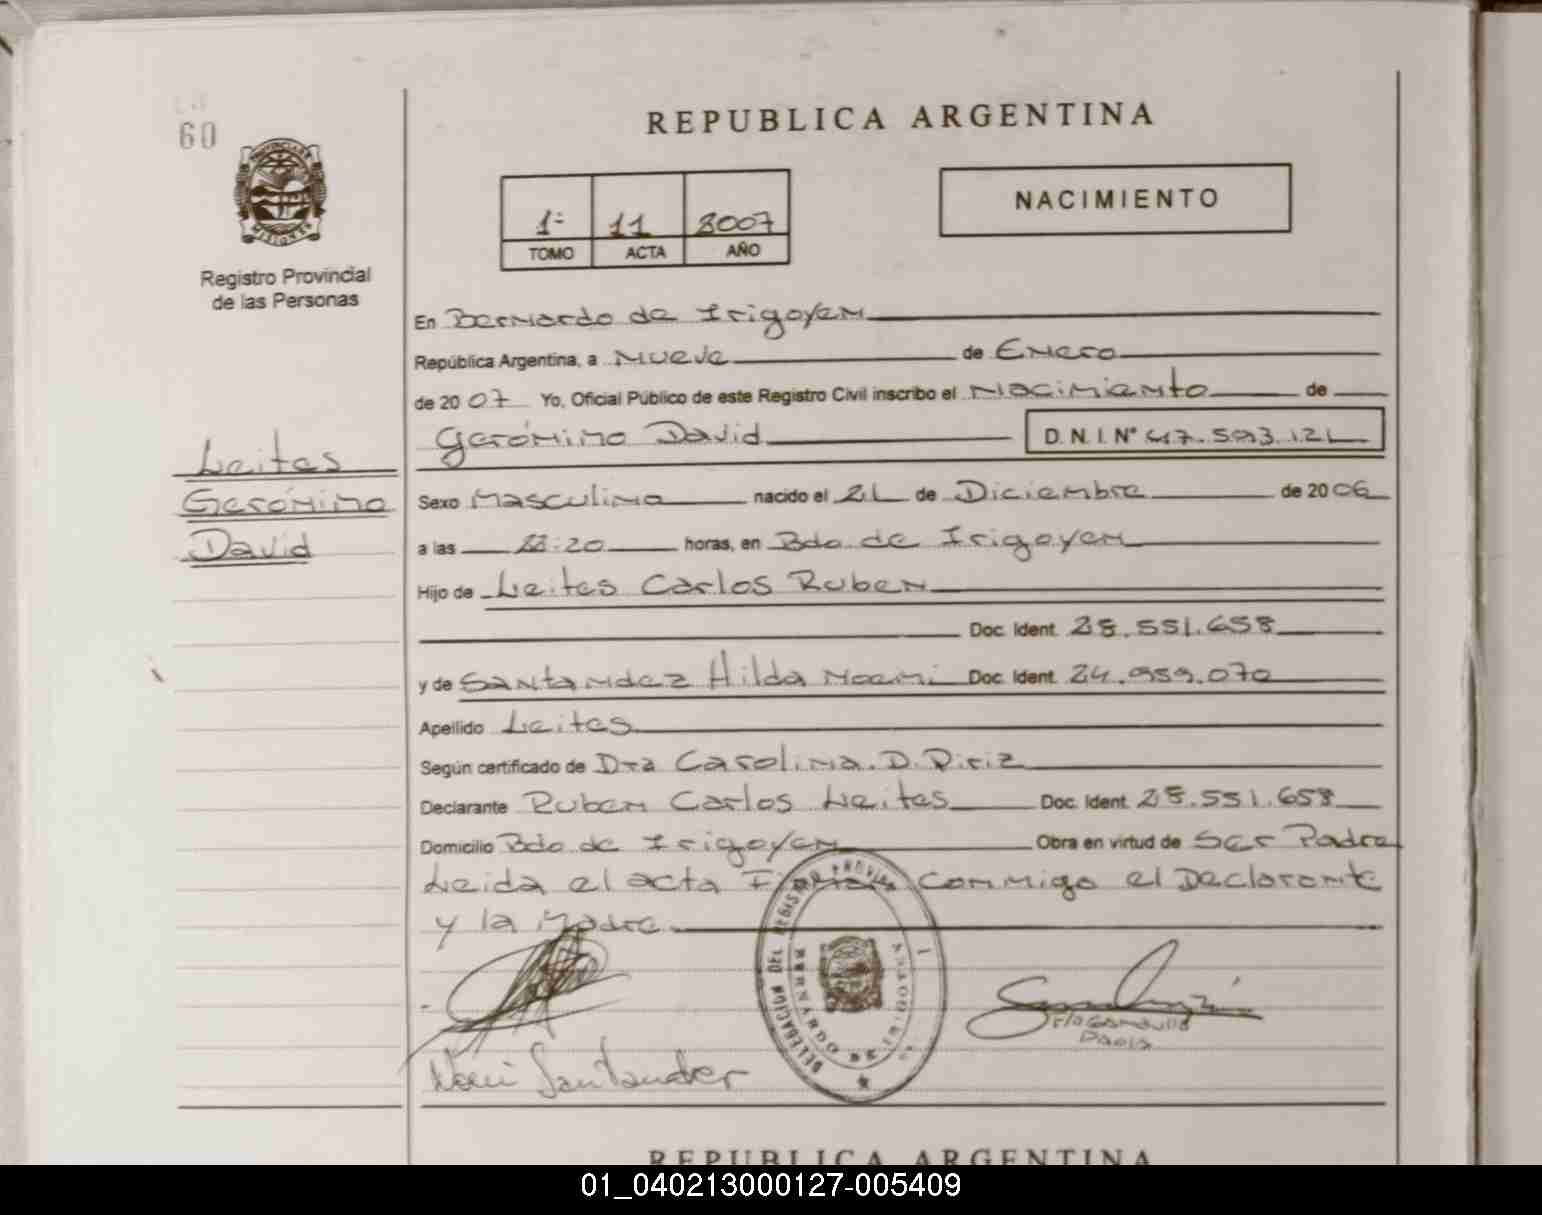 60
REPUBLICA ARGENTINA
PROVINCIA DE
MISIONES
Registro Provincial
de las Personas
1º 11 2007
TOMO ACTA AÑO
NACIMIENTO
En Bernardo de Irigoyen
República Argentina, a Nueve de Enero
de 2007 Yo, Oficial Público de este Registro Civil inscribo el Nacimiento de
Gerónimo David D.N.I. Nº 47.593.121
Leites
Gerónimo
David
Sexo Masculino nacido el 21 de Diciembre de 2006
a las horas, en Bdo. de Irigoyen
Hijo de Leites Carlos Ruben
Doc. Ident. 28.551.658
y de Santander Hilda Noemi Doc. Ident. 24.959.070
Apellido Leites
Según certificado de Dra Carolina. D.
Declarante Ruben Carlos Leites Doc. Ident. 28.551.658
Domicilio Bdo de Irigoyen Obra en virtud de Ser Padre
Leida el acta Firman conmigo el Declarante
y la Madre
DELEGACION DEL REGISTRO PROVINCIAL
BERNARDO DE IRIGOYEN
Noemi Santander
Paola
REPUBLICA ARGENTINA
01_040213000127-005409